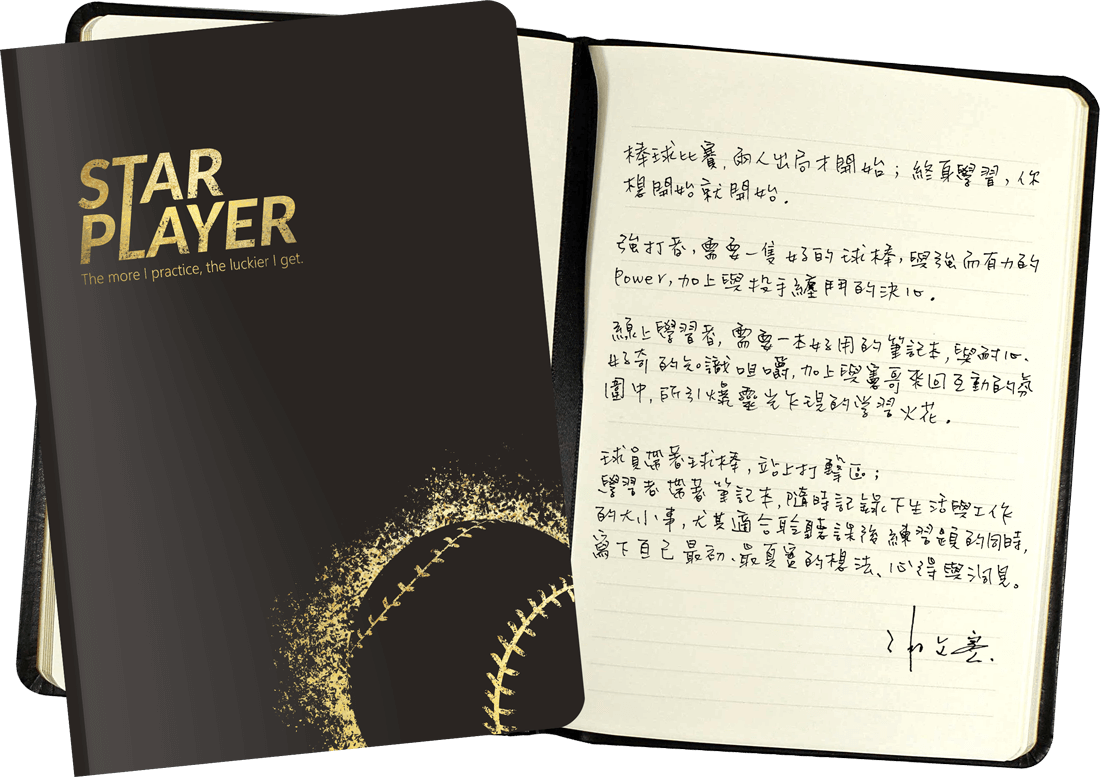 STAR
PLAYER
The more I practice, the luckier I get.
棒球比賽，兩人出局才開始；終身學習，你
想開始就開始。
強打者，需要一隻好的球棒，與強而有力的
Power，加上與投手纏鬥的決心。
線上學習者，需要一本好用的筆記本，與耐心、
好奇的知識咀嚼，加上與憲哥來回互動的氛
圍中，所引爆靈光乍現的学習火花。
球員帶著球棒，站上打擊區；
學習者帶著筆記本，隨時記錄下生活與工作
的大小事，尤其適合聆聽課後練習題的同時，
寫下自己最初、最真實的想法、心得與洞見。